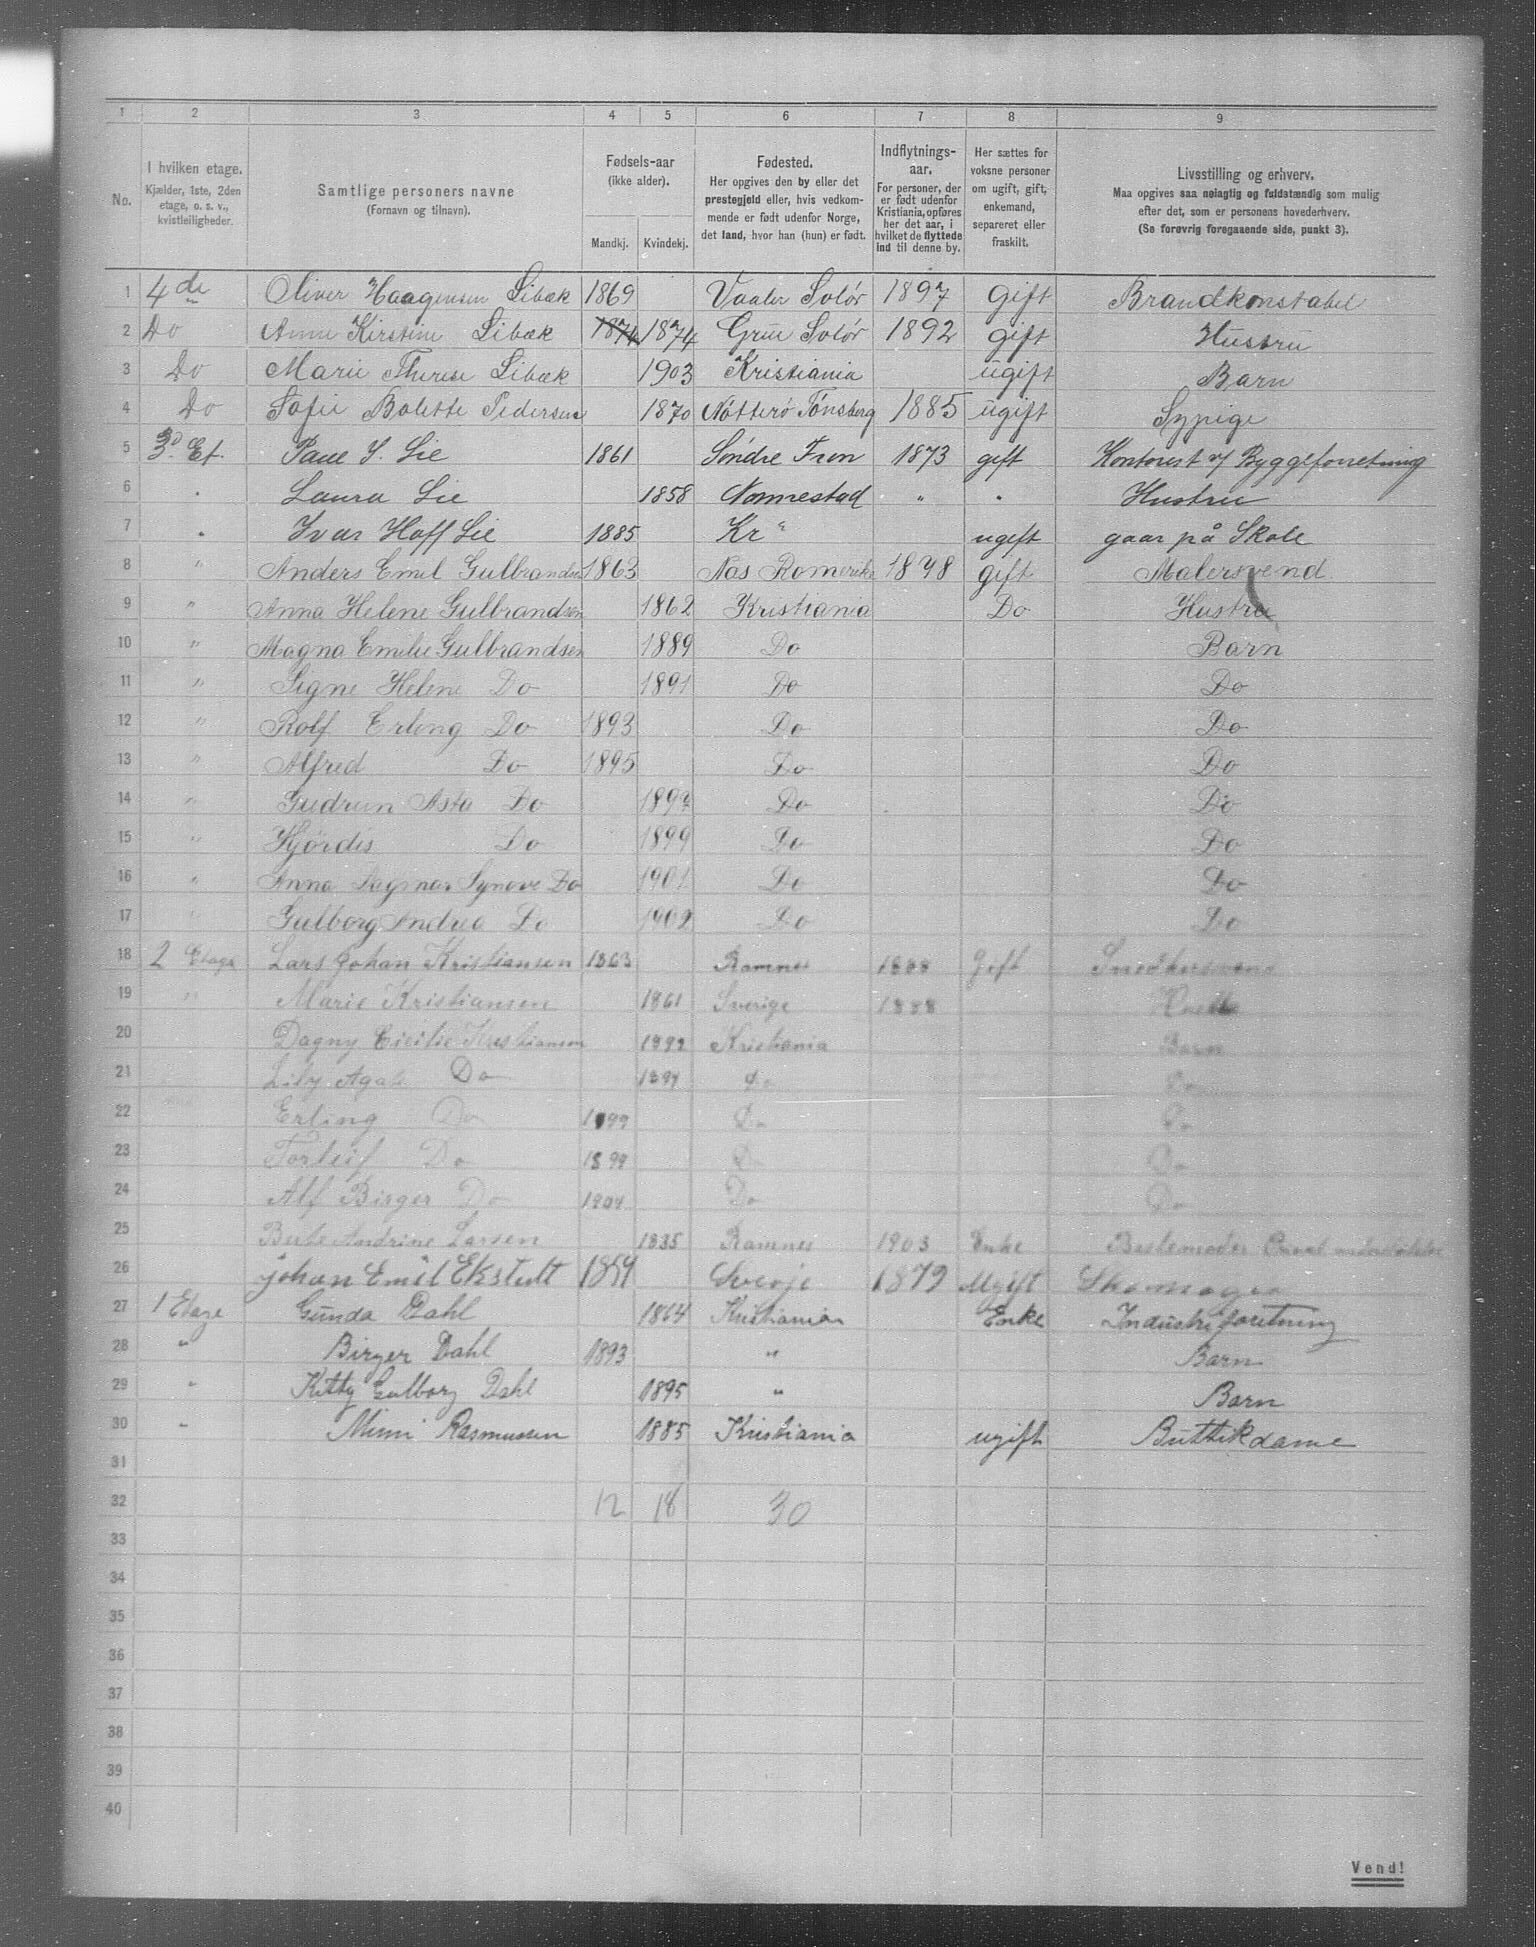 1 2 3 4 5 6 7 8 9
No.
I hvilken etage.
Kjælder, 1ste, 2den
etage, o. s. v.,
kvistleiligheder.
Samtlige personers navne
(Fornavn og tilnavn).
Fødsels-aar
(ikke alder).
Mandkj. Kvindekj.
Fødested.
Her opgives den by eller det
prestegjeld eller, hvis vedkom-
mende er født udenfor Norge,
det land, hvor han (hun) er født.
Indflytnings-
aar.
For personer, der
er født udenfor
Kristiania, opføres
her det aar, i
hvilket de flyttede
ind til denne by.
Her sættes for
voksne personer
om ugift, gift,
enkemand,
separeret eller
fraskilt.
Livsstilling og erhverv.
Maa opgives saa nøiagtig og fuldstændig som mulig
efter det, som er personens hovederhverv.
(Se forøvrig foregaaende side, punkt 3).
1 4de Oliver Haagensen Libæk 1869 Vaaler Solør 1897 Gift Brandkonstabel
2 Do Anne Kirstine Libæk 1874 1874 Grue Solør 1892 gift Hustru
3 Do Marie Therese Libæk 1903 Kristiania ugift Barn
4 Do Sofie Bolette Pedersen 1870 Nøtterø Tønsberg 1885 ugift Sypige
5 3d. Et. Paul S. Lie 1861 Søndre Fron 1873 gift Kontorist v/ Byggeforretning
6 " Laura Lie 1858 Nannestad " " Hustru
7 " Ivar Hoff Lie 1885 Kr" ugift gaar på Skole
8 " Anders Emil Gulbrandsen 1863 Nas Romerike 1878 gift Malersvend
9 " Anna Helene Gulbrandsen 1862 Kristiania Do Hustru
10 " Magna Emilie Gulbrandsen 1889 Do Barn
11 " Signe Helene Do 1891 Do Do
12 " Rolf Erling Do 1893 Do Do
13 " Alfred Do 1895 Do Do
14 " Gudrun Asta Do 1897 Do Do
15 " Hjördis Do 1899 Do Do
16 " Anna Dagmar Synøve Do 1901 Do Do
17 " Gulborg Andrea Do 1902 Do Do
18 2 Etage Lars Johan Kristiansen 1863 Ramnes 1888 Gift Snedkersvend
19 " Marie Kristiansen 1861 Sverige 1888
20 Dagny Cicilie Kristiansen 1892 Kristiania Barn
21 Lily Do Do Do
22 Erling Do Do Do
23 Torleif Do 1899 Do Do
24 Alf Birger Do Do Do
25 Berte Andrine Larsen 1835 Ramnes 1903 Enke Bestemoder
26 Johan Emil Ekstedt 1859 Sverje 1879 Ugift Skomager
27 1 Etage Gunda Dahl 1864 Kristiania Enke Industriforetning
28 " Birger Dahl 1893 " Barn
29 " Kitty Gulborg Dahl 1895 " Barn
30 " Mimi Rasmussen 1885 Kristiania ugift Buttikdame
31
32 12 18 30
33
34
35
36
37
38
39
40
Vend!